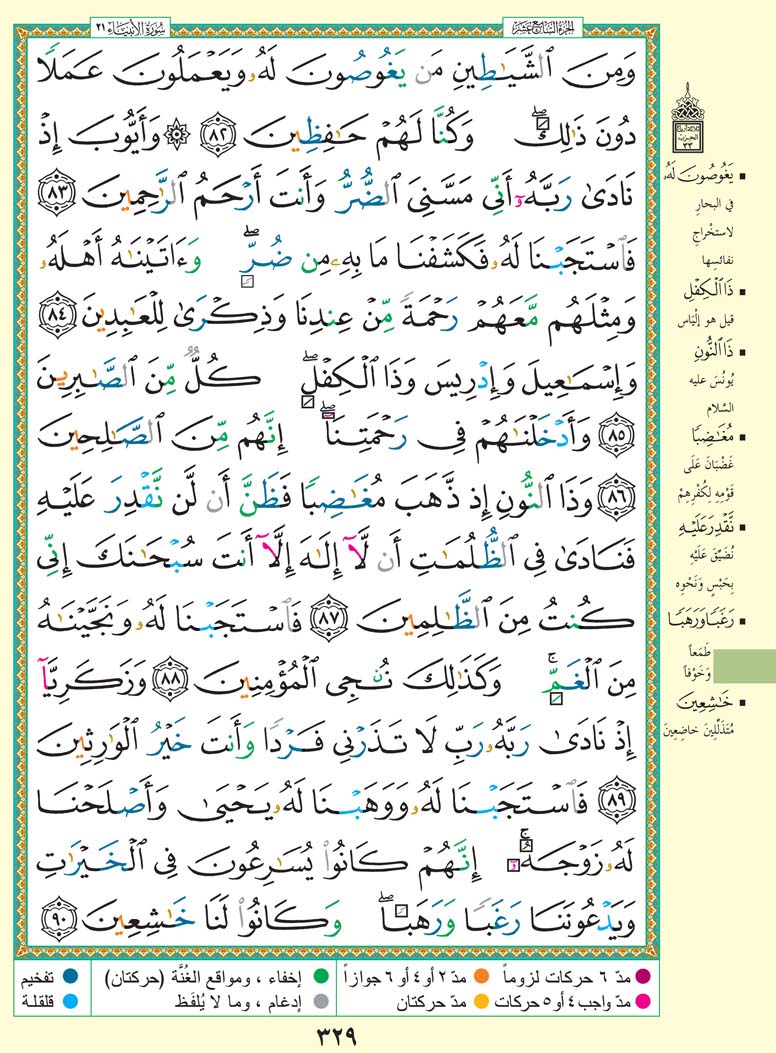 سُورَةُ الأَنبِيَاء ٢١
الجُزءُ السَّابِعُ عَشَر
وَمِنَ ٱلشَّيَـٰطِينِ مَن يَغُوصُونَ لَهُۥ وَيَعْمَلُونَ عَمَلًا
دُونَ ذَٰلِكَ ۖ وَكُنَّا لَهُمْ حَـٰفِظِينَ ﴿٨٢﴾ ۞ وَأَيُّوبَ إِذْ
نَادَىٰ رَبَّهُۥٓ أَنِّى مَسَّنِىَ ٱلضُّرُّ وَأَنتَ أَرْحَمُ ٱلرَّٰحِمِينَ ﴿٨٣﴾
فَٱسْتَجَبْنَا لَهُۥ فَكَشَفْنَا مَا بِهِۦ مِن ضُرٍّ ۖ وَءَاتَيْنَـٰهُ أَهْلَهُۥ
وَمِثْلَهُم مَّعَهُمْ رَحْمَةً مِّنْ عِندِنَا وَذِكْرَىٰ لِلْعَـٰبِدِينَ ﴿٨٤﴾
وَإِسْمَـٰعِيلَ وَإِدْرِيسَ وَذَا ٱلْكِفْلِ ۖ كُلٌّ مِّنَ ٱلصَّـٰبِرِينَ
﴿٨٥﴾ وَأَدْخَلْنَـٰهُمْ فِى رَحْمَتِنَآ ۖ إِنَّهُم مِّنَ ٱلصَّـٰلِحِينَ
﴿٨٦﴾ وَذَا ٱلنُّونِ إِذ ذَّهَبَ مُغَـٰضِبًا فَظَنَّ أَن لَّن نَّقْدِرَ عَلَيْهِ
فَنَادَىٰ فِى ٱلظُّلُمَـٰتِ أَن لَّآ إِلَـٰهَ إِلَّآ أَنتَ سُبْحَـٰنَكَ إِنِّى
كُنتُ مِنَ ٱلظَّـٰلِمِينَ ﴿٨٧﴾ فَٱسْتَجَبْنَا لَهُۥ وَنَجَّيْنَـٰهُ
مِنَ ٱلْغَمِّ ۚ وَكَذَٰلِكَ نُـۨجِى ٱلْمُؤْمِنِينَ ﴿٨٨﴾ وَزَكَرِيَّآ
إِذْ نَادَىٰ رَبَّهُۥ رَبِّ لَا تَذَرْنِى فَرْدًا وَأَنتَ خَيْرُ ٱلْوَٰرِثِينَ
﴿٨٩﴾ فَٱسْتَجَبْنَا لَهُۥ وَوَهَبْنَا لَهُۥ يَحْيَىٰ وَأَصْلَحْنَا
لَهُۥ زَوْجَهُۥٓ ۚ إِنَّهُمْ كَانُوا۟ يُسَـٰرِعُونَ فِى ٱلْخَيْرَٰتِ
وَيَدْعُونَنَا رَغَبًا وَرَهَبًا ۖ وَكَانُوا۟ لَنَا خَـٰشِعِينَ ﴿٩٠﴾
الحزب
٣٣
▪ يَغُوصُونَ لَهُۥ
في البحار
لاستخراج
نفائسِها
▪ ذَا ٱلْكِفْلِ
قيل هو إلْيَاس
▪ ذَا ٱلنُّونِ
يُونُسَ عليه
السَّلام
▪ مُغَـٰضِبًا
غَضْبَانَ عَلَى
قَوْمِهِ لِكُفْرِهِمْ
▪ نَّقْدِرَ عَلَيْهِ
نُضَيِّقَ عَلَيْهِ
بِحَبْسٍ وَنَحْوِه
▪ رَغَبًا وَرَهَبًا
طَمَعاً
وَخَوْفاً
▪ خَـٰشِعِينَ
مُتَذَلِّلِينَ خاضِعِينَ
مدّ ٦ حركات لزوماً
مدّ ٢ أو ٤ أو ٦ جوازاً
إخفاء ، ومواقع الغُنَّة (حركتان)
تفخيم
مدّ واجب ٤ أو ٥ حركات
مدّ حركتان
إدغام ، وما لا يُلفَظ
قلقلة
٣٢٩